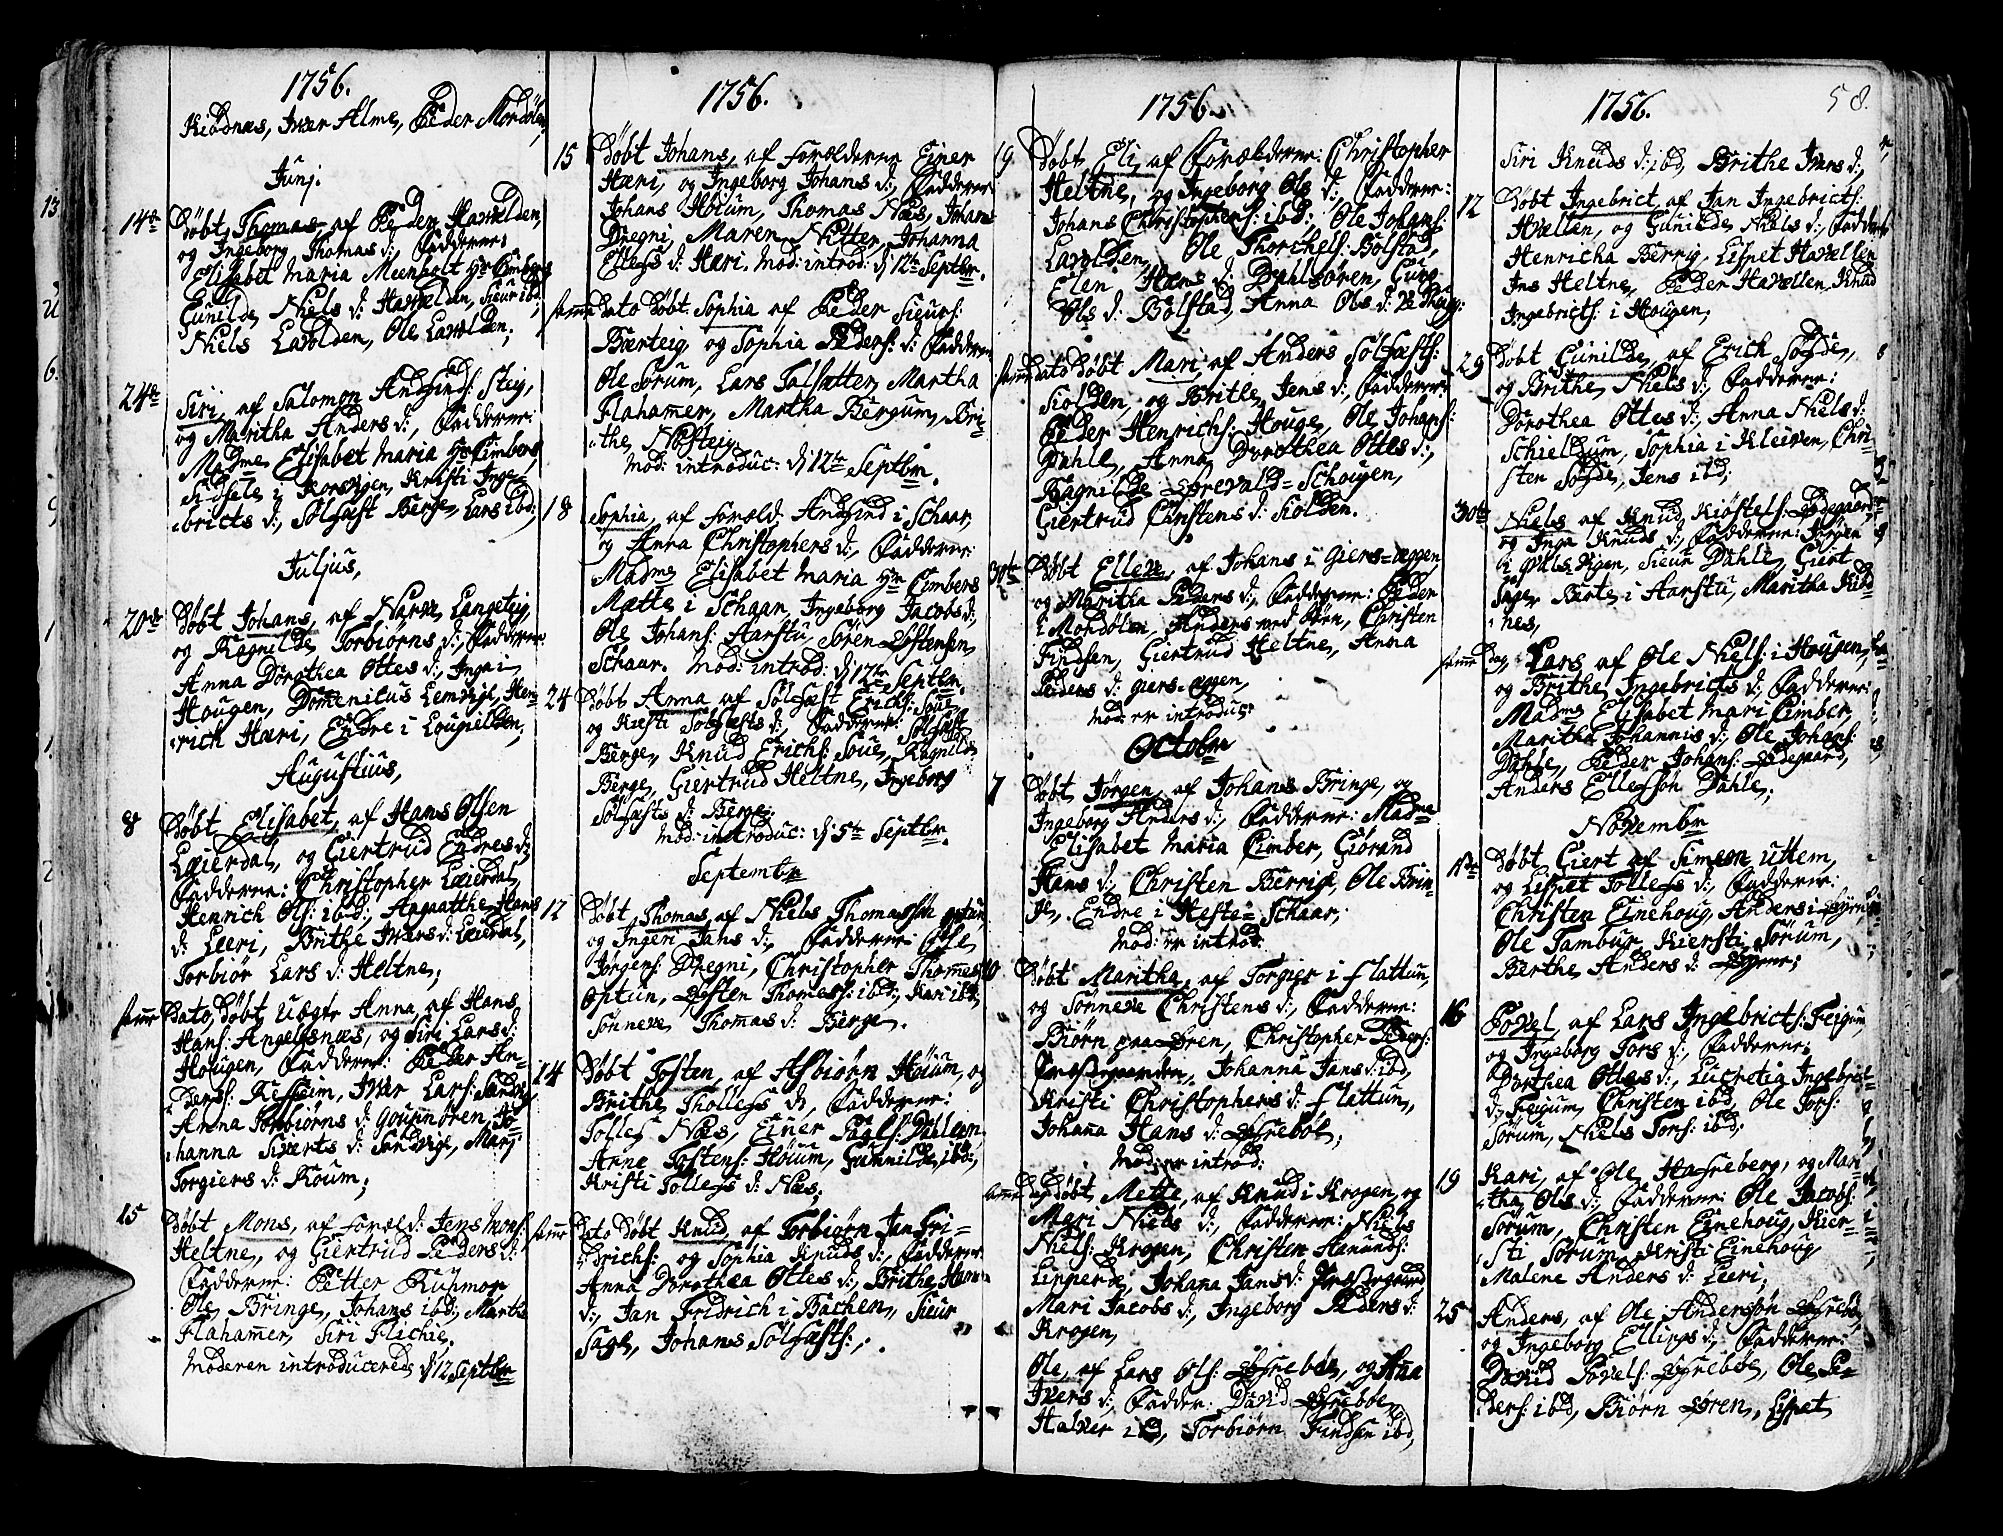 1756.
Kiødnæs, Iver Alme, Peder Mordølen,
Junj.
14de Døbt Thomas, af Peder Havelden,
og Ingeborg Thomas d:, Faddere:
Elisabet Maria Meenholt Hr Cimbers
Gunilde Niels d: Havelden, Sieur ibd,
Niels Lavolden, Ole Lavolden;
24de Siri, af Salomon Andfind: Steig,
og Maritha Anders d:, Faddere:
Madme Elisabet Maria Hr Cimbers,
Sidsele i Korsvigen, Kristi Inge-
bricts d:, Solfæst Berge, Lars ibd;
Juljus,
20de Døbt Johans, af Narve Langeteig,
og Ragnilde Torbiørns d:, Faddere:
Anna Dorothea Ottes d:, Inga i
Hougen, Domenikus Lemvige, Hen-
rich Hæri, Endre i Loupielden,
Augustius,
8 Døbt Elisabet, af Hans Olsen
Læierdal, og Giertrud Endres d:,
Faddere: Christopher Læierdal,
Henrich Ols: ibd:, Aagaatthe Hans
d: Læri, Brithe Ivers d: Leierdal,
Torbiør Lars d: Heltne;
samme Dato, Døbt Ubgtr Anna, af Hans
Hans: Angelfsnæs, og Siri Lars d:
Hougen, Faddere: Peder An-
ders: Kefseim, Iver Lars: Sandvig,
Anna Torbiørns d: Goupnøren, Jo-
hanna Siverts d: Sandvige, Marj
Torgiers d: Roum;
15 Døbt Mons, af Foræld: Jens Mons:
Heltne, og Giertrud Peders d:
Faddere: Petter
Ole Bringe, Johans ibd, Martha
Flahamer, Siri Flichie.
Moderen introducerede d: 12 Septbr
1756.
15 Døbt Johans, af Forælderne Einer
Hæri, og Ingeborg Johans d:, Faddere:
Johans Høium, Thomas Næs, Johans
Dregni, Maren Nitter, Johanna
Ellefs d: Hæri. Mod: introd: d: 12te Septbr.
samme Dato Døbt Sophia af Peder Sieurs:
Bærteig, og Sophia Peders: d: Faddere
Ole Sørum, Lars Talsætter, Martha
Flahamer, Martha Bergum, Bri-
the Næsteig.
Mod: introduc: d: 12te Septbr.
18 Sophia, af Foræld: Andfind i Schaar,
og Anna Christophers d:, Faddere:
Madme Elisabet Maria Hr Cimbers
Mætte i Schaar, Ingeborg Jacobs d:,
Ole Johans: Aarstu, Søren
Schaar. Mod: introd: d: 12te Septbr.
24 Døbt Anna af Solfæst Erichs: Soue,
og Kiesti Solfæsts d: Faddere: Solfæst
Berge, Knud Erichs: Soue, Ragnilde
Berge, Giertrud Heltne, Ingeborg
Solfæsts d: Berge.
Mod: introduc: d: 5te Septbr.
Septembr
12 Døbt Thomas, af Niels Thomassøn optun,
og Ingeri Jans d:, Faddere: Ole
Jørgens: Dregni, Christopher Thomes:
Optun, Thomess: ibd:, Kari ibd,
Sønneve Thomas d: Berge.
14 Døbt Tosten, af Asbiørn Høium, og
Brithe Thollefs d:, Faddere:
Tollef Næs, Einer Pagls: Dahlen,
Anne Tostens: Høium, Gunnilde ibd:,
Kristi Tollefs d: Næs;
samme Dato Døbt Knud, af Torbiørn Jan Fri-
drichs: og Sophia Knuds d:, Faddere
Anna Dorothea Ottes d:, Brithe Hans
d:, Jan Fridrich i Bachen, Sieur
Sage, Johans Solfæsts:,
1756.
19 Døbt Eli, af Forælderne: Christopher
Heltne, og Ingeborg Ols d:, Faddere:
Johans Christophers: ibd:, Ole Johans:
Lavolden, Ole Thorchels: Bolstad,
Elen Hans d: Dahlsøren, Gure
Ols d: Bolstad, Anna Ols d:
samme Dato Døbt Mari, af Anders Solfæsts:
Siolden, og Brithe Jens d:, Faddere:
Peder Henrichs: Houge, Ole Johans:
Dahle, Anna Dorothea Ottes d:,
Ragnilde Schougen,
Giertrud Christens d: Siolden.
30te Døbt Ellen, af Johans i Giers-æggen,
og Maritha Peders d:, Faddere: Peder
i Mordølen, Anders Christen
Findsen, Giertrud Heltne, Anna
Peders d: giers-æggen,
Mod: er introduc:
Octobr
7 Døbt Jørgen, af Johans Bringe, og
Ingeborg Anders d:, Faddere: Madme
Elisabet Maria Cimber, Giørand
Hans d:, Christen Berrige, Ole Brin-
ge, Endre i Heste-Schaar,
Mod: er introd:
10 Døbt Maritha, af Torgier i Flattun,
og Sønneve Christens d:, Faddere:
Biørn paa Øren, Christopher Peders:
Præstegaarden, Johanna Jans d: ibd,
Kristi Christophers d: Flattun,
Johana Hans d:
Mod: er introd:
samme dag døbt Mette, af Knud i Krogen, og
Mari Niels d:, Faddere: Niels
Niels: Krogen, Christen Aamunds:
Lipperde, Johana Jans d:
Mari Jacobs d:, Ingeborg Peders d:
Krogen,
Ole, af Lars Ols: og Anna
Ivers d:, Fadder: David
Halver ibd, Torbiørn Findsen ibd,
1756.
58.
Siri Knuds d: ibd, Brithe Ivers d:,
12 Døbt Ingebrict, af Jan Ingebricts:
Hvellen, og Gunilde Niels d:, Faddere
Henricha Berrig, Lispet Havellen
Jns Heltne, Peder Havellen, Knud
Ingebricts: i Hougen,
29 Døbt Gunilde, af Erich Søgde,
og Brithe Niels d:, Faddere:
Dorothea Ottes d:, Anna Niels d:
Schieldum, Sophia i Kleiven, Chri-
sten Søgde, Jens ibd;
30te Niels af Knud Kiøstels: Ødegaard,
og Inga Knuds d:, Faddere: Jørgen
i Sieur Dahle, Giert
Sage, Birte i Aarstu, Maritha Kiød-
nes,
samme dag, Lars af Ole Niels: i Hougen,
og Brithe Ingebricts d:, Faddere:
Madme Elisabet Mari Cimber,
Maritha Johannis d:, Ole Johans:
Dahle, Peder Johans: Ødegaard,
Anders Ellefsøn Dahle;
Novembr
1ste Døbt Giert af Simeon Uttem,
og Lispet Tollefs d:, Faddere:
Christen Einehoug, Anders i
Ole Tambur, Kiersti Sørum,
Berthe Anders d:
16 Povel, af Lars Ingebricts: Feigum
og Ingeborg Tors d:, Faddere:
Dorthea Ottes d:, Lucretia Ingebrict-
d: Feigum, Christen ibd, Ole Tors:
Sørum, Niels Tors: ibd;
19 Kari, af Ole Hafreberg, og Mari-
tha Ols d:, Faddere: Ole Jacobs:
Sørum, Christen Einehoug, Kier-
sti Sørum, Kristi Einehoug,
Malene Anders d: Leeri;
25 Anders, af Ole Andersøn
og Ingeborg Ellings d:, Faddere:
David Povels: Ole Pe-
ders: ibd, Biørn Øren, Lispet